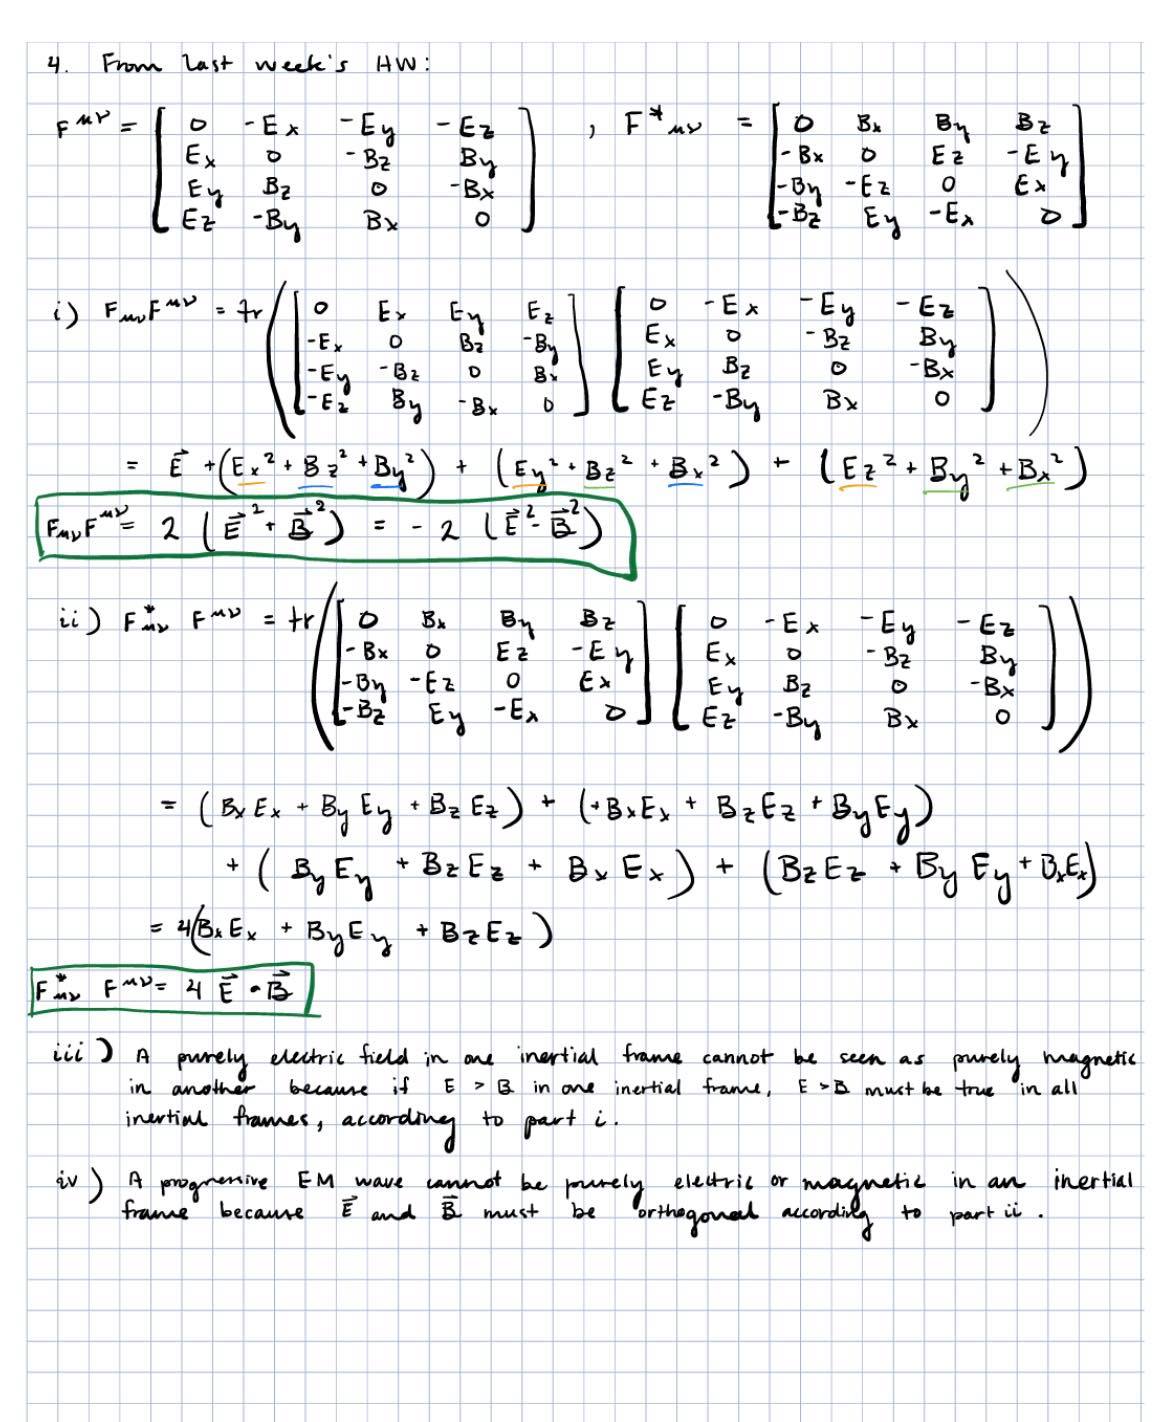 4. From last week's HW:
F^{μν} = [ 0 -Ex -Ey -Ez ] , F*_{μν} = [ 0 Bx By Bz ]
[ Ex 0 -Bz By ] [ -Bx 0 Ez -Ey ]
[ Ey Bz 0 -Bx ] [ -By -Ez 0 Ex ]
[ Ez -By Bx 0 ] [ -Bz Ey -Ex 0 ]
i) F_{μν}F^{μν} = tr ( [ 0 Ex Ey Ez ] [ 0 -Ex -Ey -Ez ] )
[ -Ex 0 Bz -By ] [ Ex 0 -Bz By ]
[ -Ey -Bz 0 Bx ] [ Ey Bz 0 -Bx ]
[ -Ez By -Bx 0 ] [ Ez -By Bx 0 ]
= E⃗ + (Ex² + Bz² + By²) + (Ey² + Bz² + Bx²) + (Ez² + By² + Bx²)
F_{μν}F^{μν} = 2 (E⃗² + B⃗²) = -2 (E⃗² - B⃗²)
ii) F*_{μν} F^{μν} = tr ( [ 0 Bx By Bz ] [ 0 -Ex -Ey -Ez ] )
[ -Bx 0 Ez -Ey ] [ Ex 0 -Bz By ]
[ -By -Ez 0 Ex ] [ Ey Bz 0 -Bx ]
[ -Bz Ey -Ex 0 ] [ Ez -By Bx 0 ]
= (BxEx + ByEy + BzEz) + (+BxEx + BzEz + ByEy)
+ (ByEy + BzEz + BxEx) + (BzEz + ByEy + BxEx)
= 4(BxEx + ByEy + BzEz)
F*_{μν} F^{μν} = 4 E⃗ · B⃗
iii) A purely electric field in one inertial frame cannot be seen as purely magnetic
in another because if E > B in one inertial frame, E > B must be true in all
inertial frames, according to part i.
iv) A progressive EM wave cannot be purely electric or magnetic in an inertial
frame because E⃗ and B⃗ must be orthogonal according to part ii.